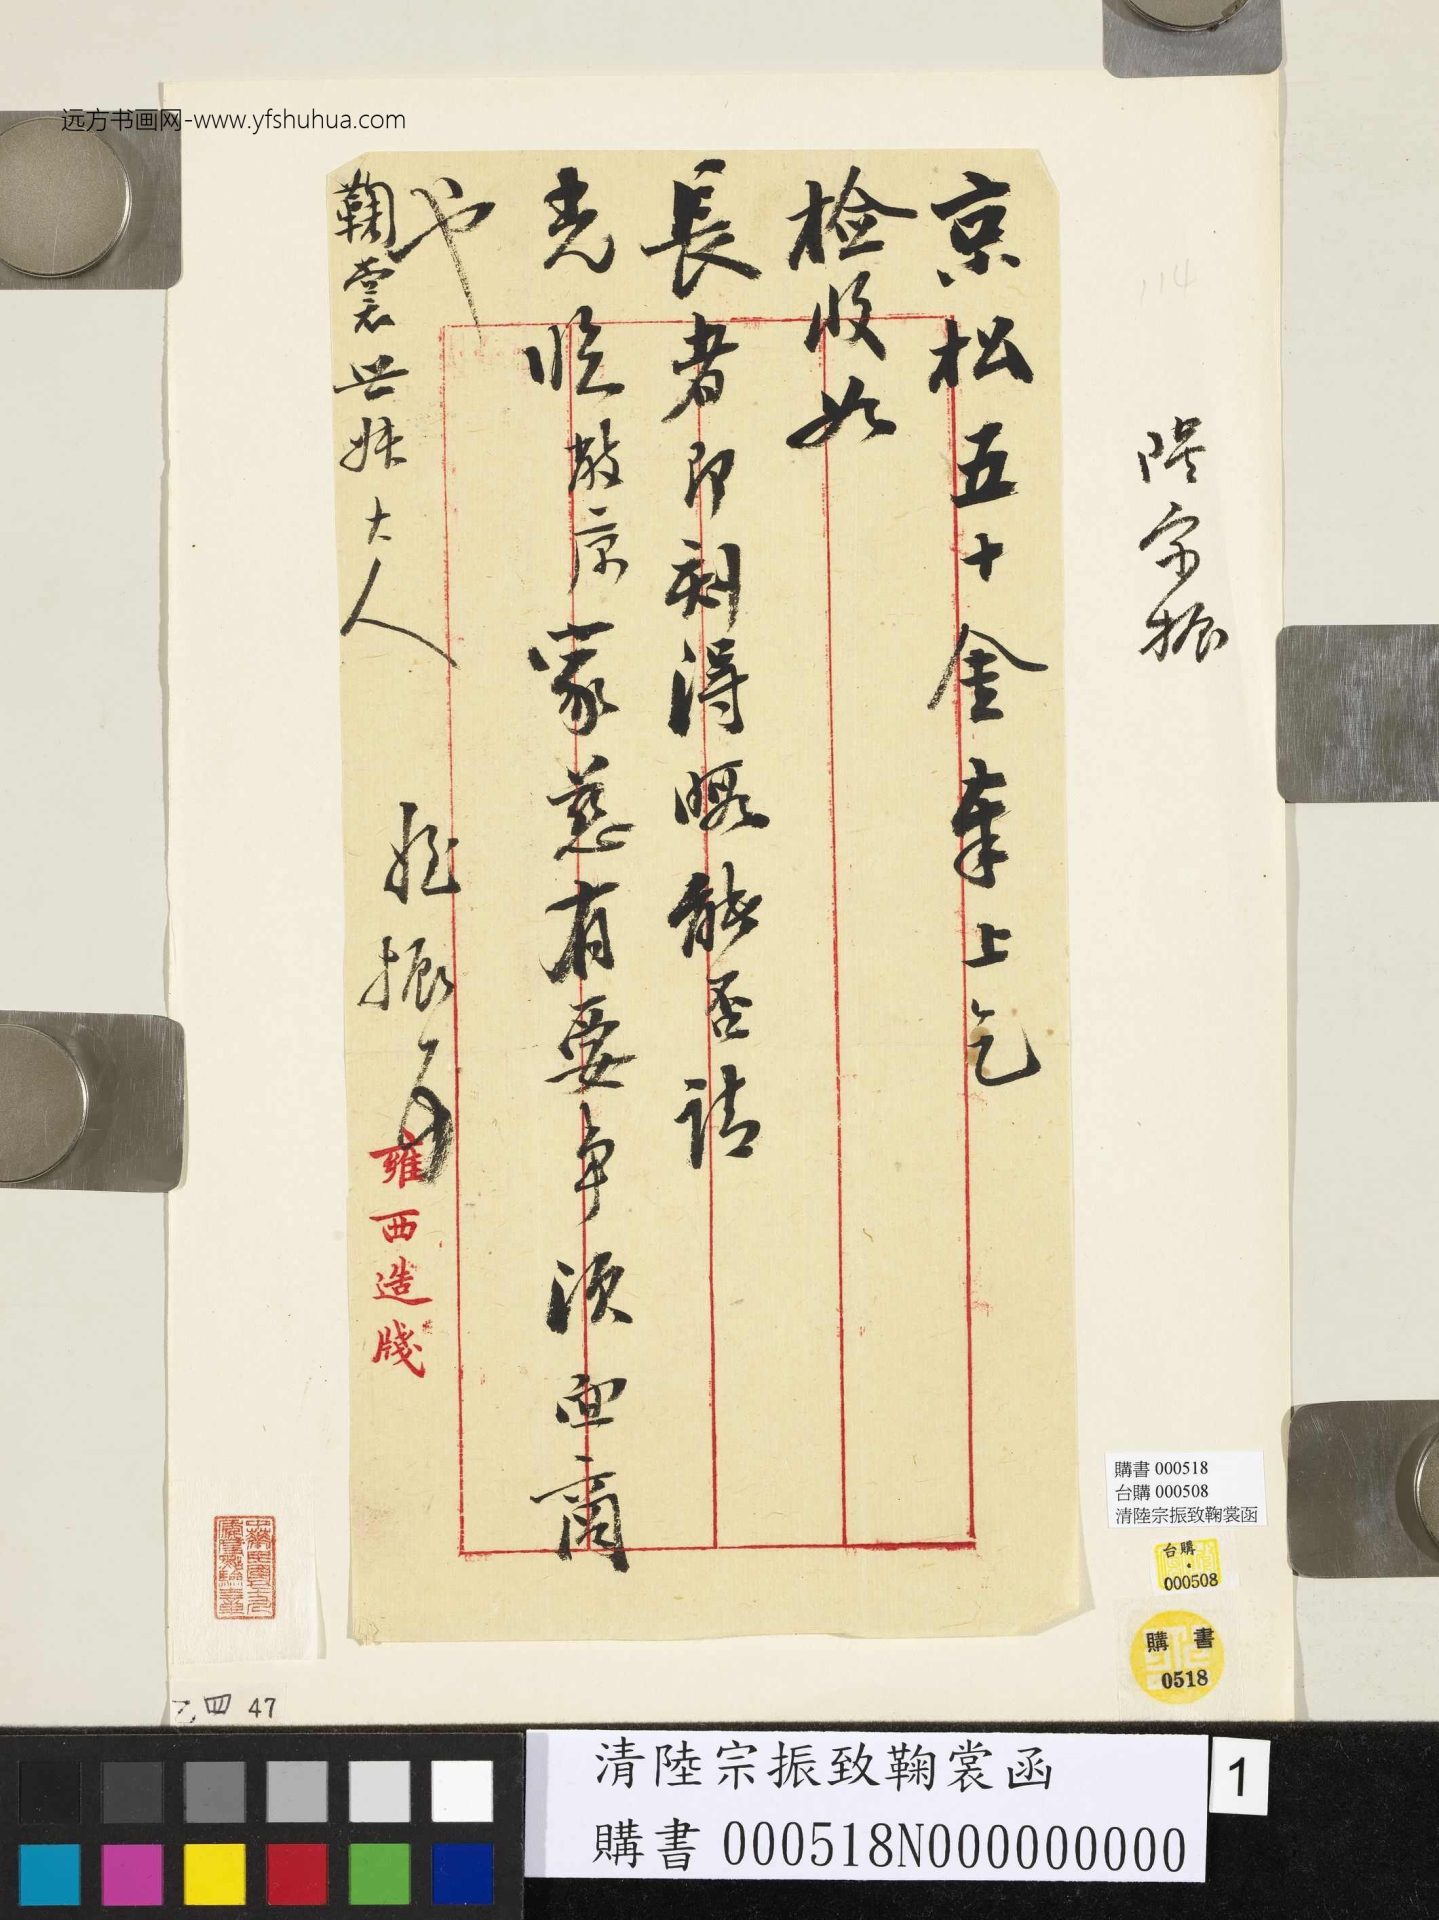 远方书画网-www.yfshuhua.com
114
陸宗振
京松五十金奉上乞
檢收如
長者即刻得暇能否請
光臨敝寓家慈有要事須面商
也
鞠裳世姨大人
姪振
雍西造牋
購書 000518
台購 000508
清陸宗振致鞠裳函
台購
000508
購書
0518
乙,四 47
清陸宗振致鞠裳函
購書 000518N000000000
1